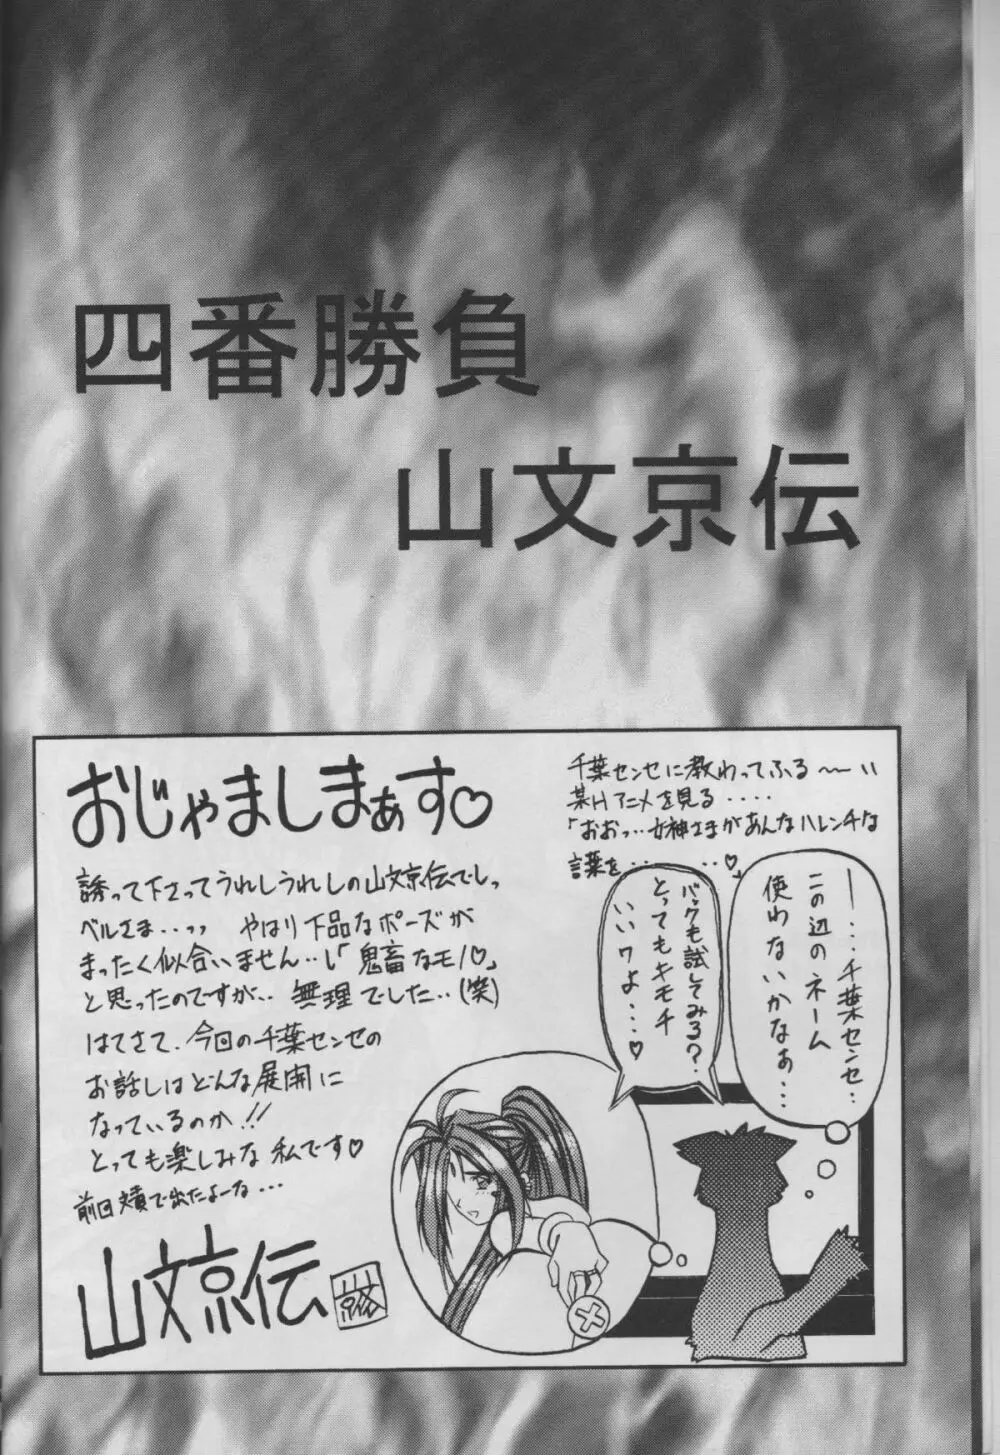 四番勝負
山文京伝
おじゃましまぁす♡
誘って下さってうれしうれしの山文京伝でしっ
ベルさま・・・ッッ やはり下品なポーズが
まったく似合いません・・し「鬼畜なモノ♡」
と思ったのですが・・ 無理でした・・(笑)
はてさて、今回の千葉センセの
お話しはどんな展開に
なっているのか!!
とっても楽しみな私です♡
前回 で出たよーな・・・
山文京伝
千葉センセに教わってふる〜〜い
某Hアニメを見る・・・・
「おおっ・・・女神さまがあんなハレンチな
言葉を・・・・・・・♡」
ー・・・千葉センセ・・
この辺のネーム
使わないかなぁ・・・
バックも試してみる?・・
とってもキモチ
いいワよ・・・♡